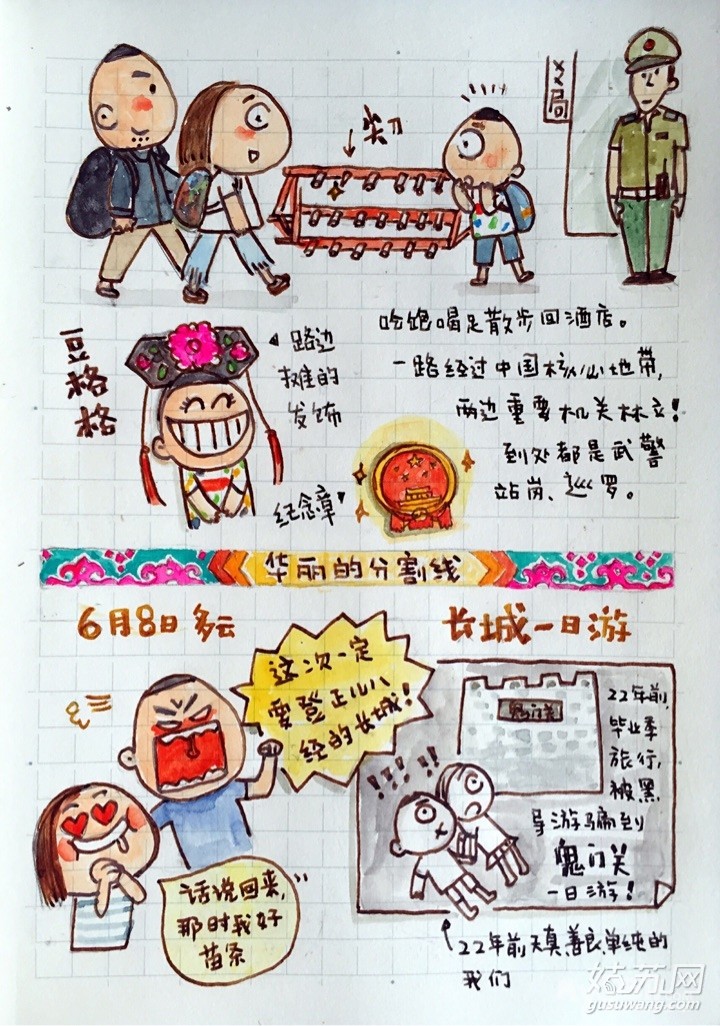 尖刀
××局
豆格格
路边
摊的
发饰
吃饱喝足散步回酒店。
一路经过中国核心地带,
两边重要机关林立!
到处都是武警
站岗、巡罗。
纪念章
华丽的分割线
6月8日多云
长城一日游
这次一定
要登正儿八
经的长城!
话说回来,
那时我好
苗条
鬼门关
22年前,
毕业季
旅行,
被黑
导游骗到
鬼门关
一日游!
22年前天真善良单纯的
我们
姑苏网
gusuwang.com